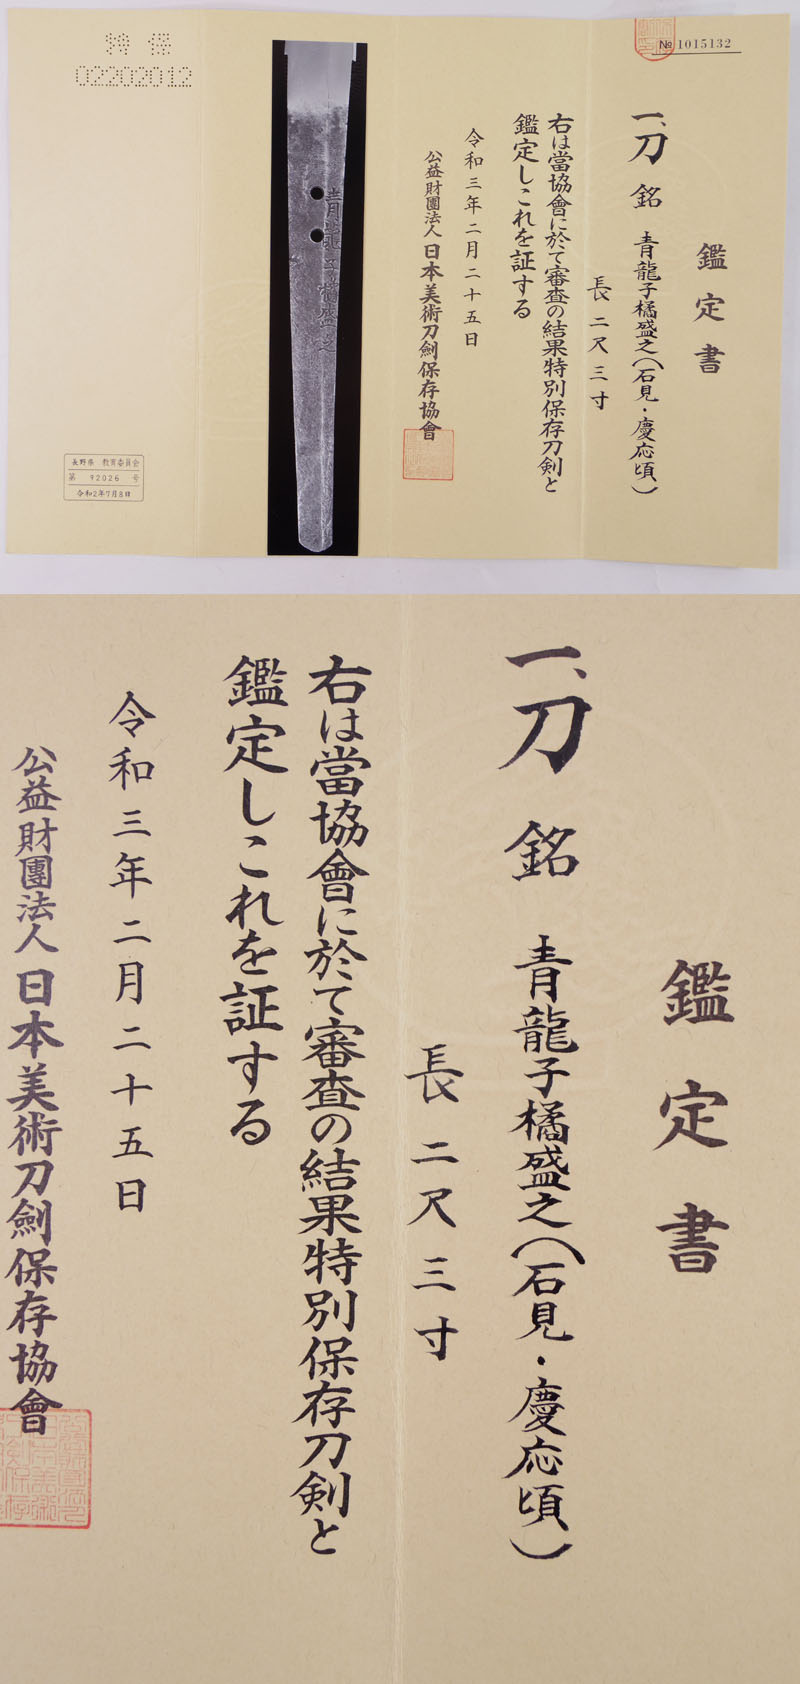 № 1015132
鑑定書
一、刀 銘 青龍子橘盛之(石見・慶応頃)
長 二尺三寸
右は當協會に於て審査の結果特別保存刀剣と
鑑定しこれを証する
令和三年二月二十五日
公益財團法人 日本美術刀劍保存協會
青龍子橘盛之
特保
02202012
長野県 教育委員会
第 92026 号
令和2年7月8日
鑑定書
一、刀 銘 青龍子橘盛之(石見・慶応頃)
長 二尺三寸
右は當協會に於て審査の結果特別保存刀剣と
鑑定しこれを証する
令和三年二月二十五日
公益財團法人 日本美術刀劍保存協會